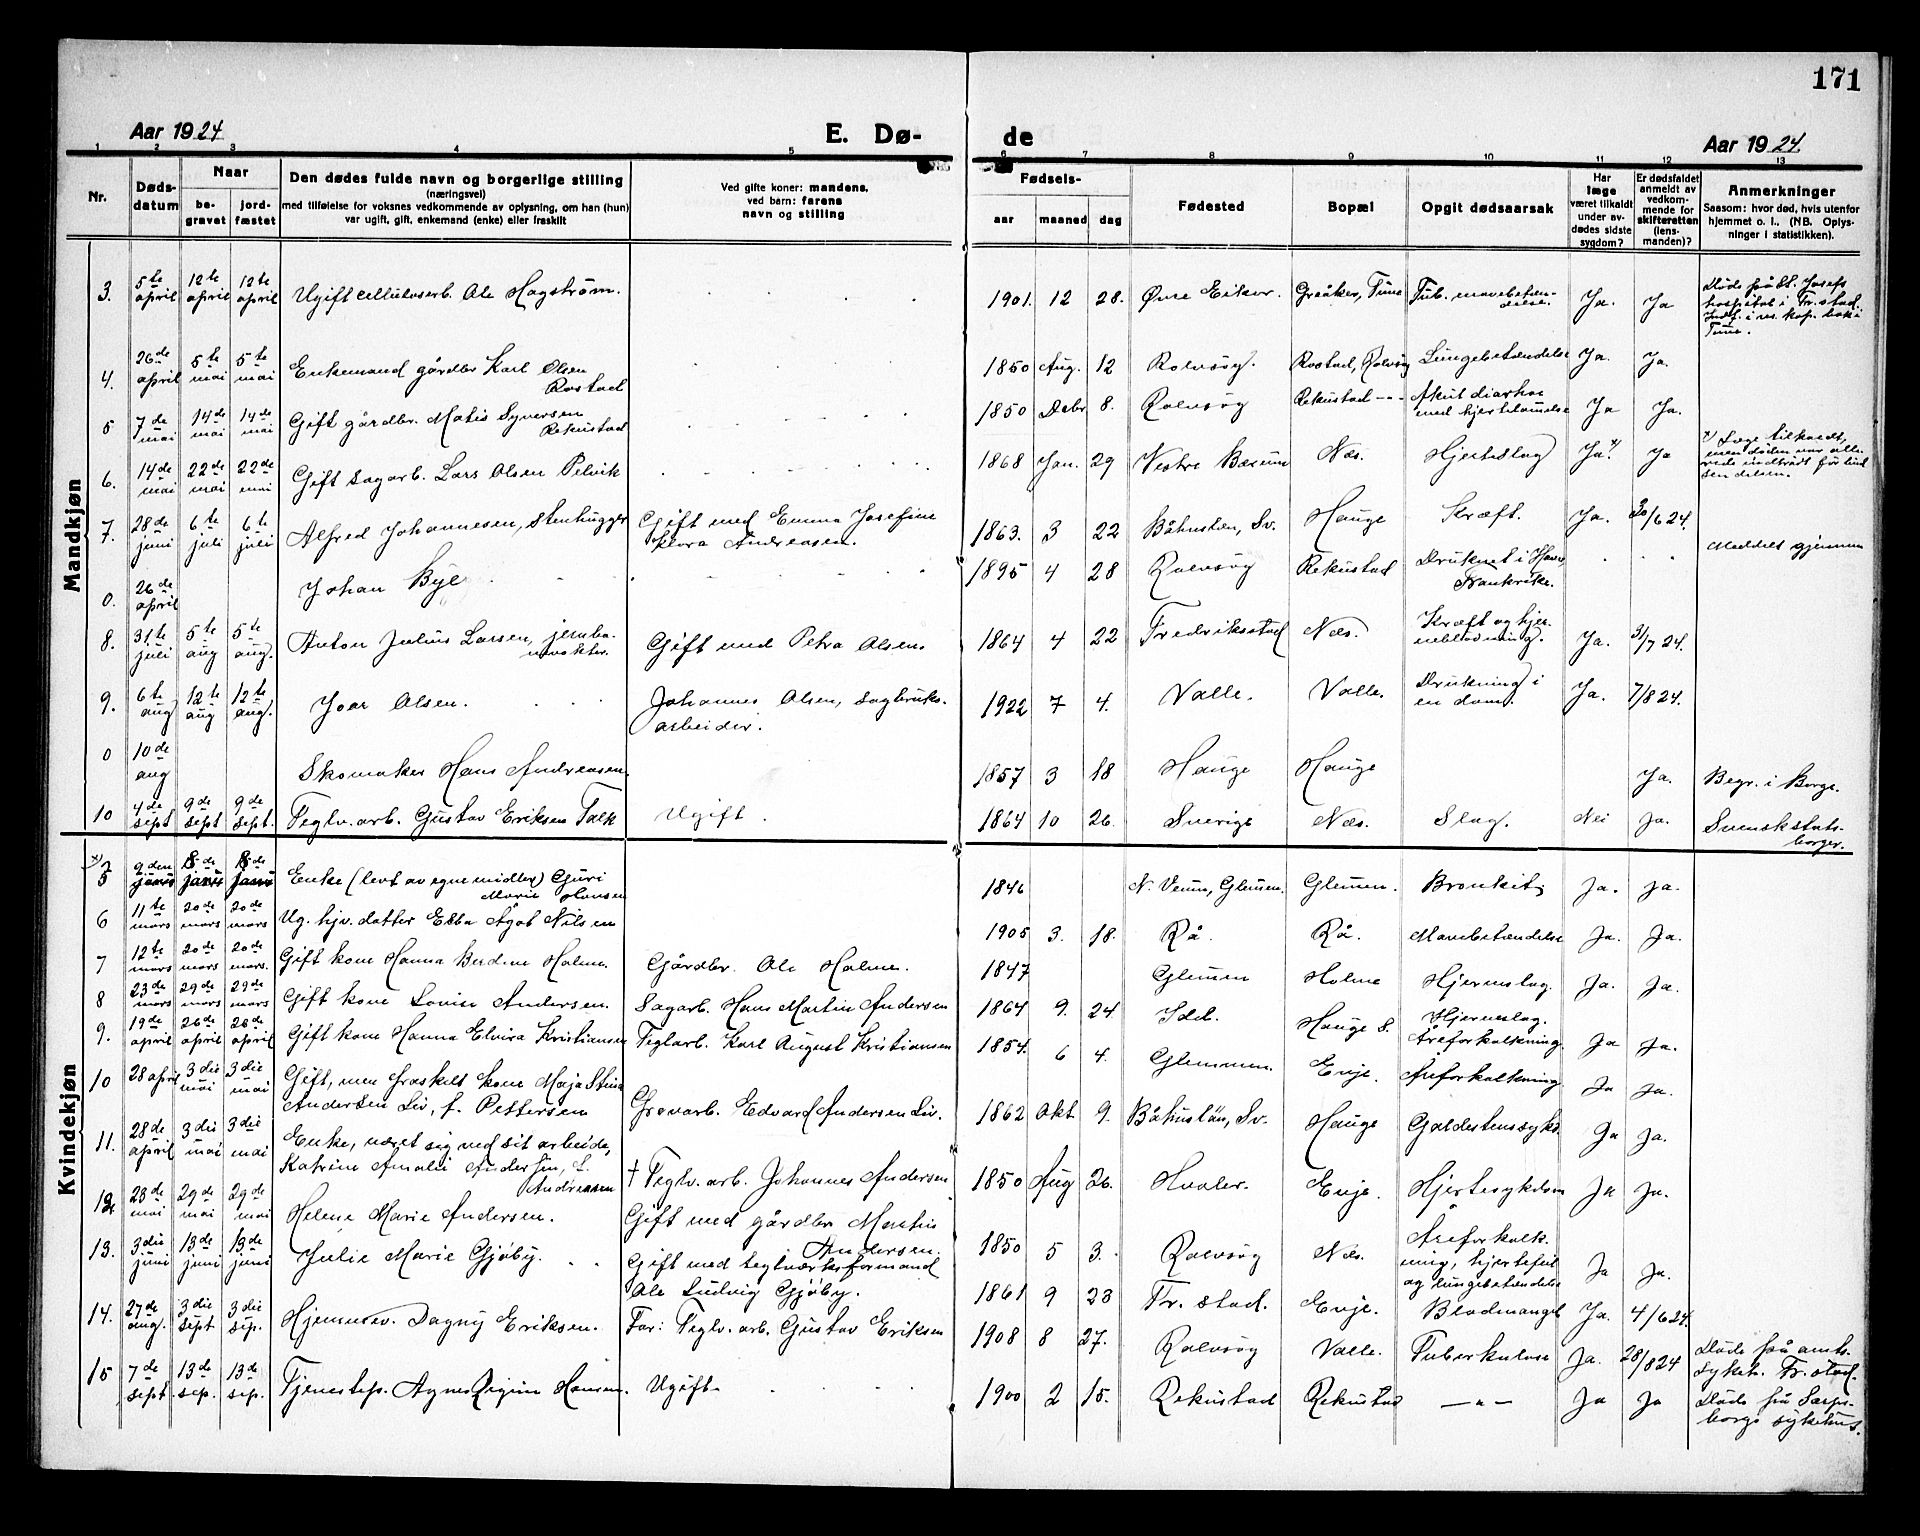 171
Aar 1924
E. Dø-
de
Aar 1924.
1 2 3 4 5 6 7 8 9 10 11 12 13
Nr.
Døds-
datum
Naar
be-
gravet
jord-
fæstet
Den dødes fulde navn og borgerlige stilling
(næringsvei)
med tilføielse for voksnes vedkommende av oplysning, om han (hun)
var ugift, gift, enkemand (enke) eller fraskilt
Ved gifte koner: mandens,
ved barn: farens
navn og stilling
Fødsels-
aar
maaned
dag
Fødested
Bopæl
Opgit dødsaarsak
Har
læge
været tilkaldt
under av-
dødes sidste
sygdom?
Er dødsfaldet
anmeldt av
vedkom-
mende for
skifteretten
(lens-
manden)?
Anmerkninger
Saasom: hvor død, hvis utenfor
hjemmet o. l., (NB. Oplys-
ninger i statistikken).
Mandkjøn
3. 5te april 12te april 12te april Ugift cellulosearb. Ole Hagstrøm. 1901. 12 28. Øvre Eiker. Greåker, Tune Tub. mavebetæn-
delse. Ja. Ja Døde på St. Josefs
hospital i Fr.stad.
Indf. i m. kap. bok i
Tune.
4. 26de april 5te mai 5te mai Enkemand gårdbr Karl Olsen
Rostad 1850 Aug. 12 Rolvsøy. Rostad, Rolvsøy Lungebetændelse Ja. Ja.
5 7de mai 14de mai 14de mai Gift gårdbr. Matis Syversen
Rekustad 1850 Debr 8. Rolvsøy Rekustad - - - Akut diarhoe
med hjertelamelse Ja Ja.
6. 14de mai 22de mai 22de mai Gift sagarb. Lars Olsen Pelvik 1868 Jan. 29 Vestre Bærum Næs. Hjerteslag Ja x) Ja x) Læge tilkaldt,
men døden var alle-
rede indtrådt før
7. 28de juni 6te juli 6te juli Alfred Johannesen, Stenhugger Gift med Emma Josefine
Klora Andreasen. 1863. 3 22 Båhuslen, Sv. Hauge Kræft. Ja. 30/6 24.
0. 26de april Johan Bye 1895 4 28 Rolvsøy Rekustad Druknet i Havre
Frankrike. Meddelt gjennem
8. 31te juli 5te aug 5te aug. Anton Julius Larsen, jernba-
nevokter. Gift med Petra Olsen 1864 4 22 Fredriksstad Næs. Kræft og hjer-
neblødning. Ja. 31/7 24.
9. 6te aug 12te aug 12te aug. Ivar Olsen. Johannes Olsen, Sagbruks-
arbeider. 1922 7 4. Valle. Valle. Drukning i
en dam. Ja. 7/8 24.
0 10de aug Skomaker Hans Andreasen. 1857 3 18 Hauge Hauge Ja. Begr. i Borge.
10 4de sept 9de sept 9de sept. Teglv. arb. Gustav Eriksen Falk Ugift. 1864 10 26. Sverige Næs. Slag. Nei Ja. Svensk stats-
borger.
Kvindekjøn
5 9den 8de 8de Enke (levt av egne midler) Guri
Marie Hansen 1846 N. Venum, Glemen. Glemen. Bronkit. Ja. Ja.
6 11te mars 20de mars 20de mars Ug. hjv. datter Ebba Ågot Nilsen 1905 3. 18. Rå. Rå. Mavebetændelse Ja. Ja.
7 12te mars 20de mars 20de mars. Gift kone Hanna Berdine Holme. Gårdbr. Ole Holme. 1847 Glemen Holme Hjerneslag Ja. Ja.
8 23de mars 29de mars 29de mars Gift kone Lovise Andersen. Sagarb. Hans Martin Andersen 1864 9. 24 Idd. Hauge S. Hjerneslag.
Åreforkalkning. Ja Ja.
9. 19de april 26de april 26de april Gift kone Hanna Elvira Kristiansen Teglarb. Karl August Kristiansen 1854. 6 4. Glemmen Evje. Åreforkalkning Ja Ja.
10 28 april 3die mai 3die mai Gift, men fraskilt kone Maja Stina
Andersen Liv, f. Pettersen Grovarb. Edvard Andersen Liv. 1862 Okt 9. Båhuslän, Sv. Hauge Galdestenssyke Ja Ja.
11. 28de april 3die mai 3die mai Enke, næret sig ved sit arbeide,
Katrine Amalie Andersen, f.
Andresen + Teglv. arb. Johannes Andersen 1850 Aug 26. Hvaler. Evje. Hjertesykdom Ja Ja.
12 23de mai 29de mai 29de mai Helene Marie Andersen. Gift med gårdbr Martin
Andersen. 1850 5 3. Rolvsøy Næs. Åreforkalk-
ning, hjertefeil
og lungebetændelse Ja Ja.
13. 3die juni 13de juni 13de juni Julie Marie Gjøby. Gift med teglværksformand
Ole Ludvig Gjøby. 1861 9 23 Fr. stad. Evje. Blodmangel Ja. 4/6 24.
14. 27de aug. 3die sept 3die sep. Hjemmev. Dagny Eriksen. Far: Teglv. arb. Gustav Eriksen 1908 8 27. Rolvsøy Valle. Tuberkulose Ja. 28/8 24 Døde på amts-
sykeh. Fr.stad.
15 7de sept 13de sep. 13de sep. Tjenestep. Agnes Regine Hansen. Ugift 1900 2 15. Rekustad Rekustad — „ — Ja Ja Døde på Sarps-
borgs sykehus.